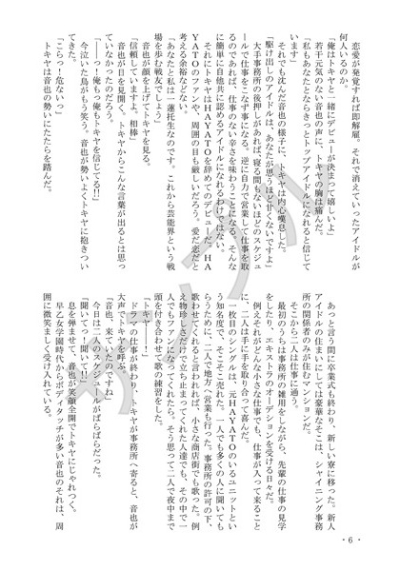 恋愛が発覚すれば即解雇。それで消えていったアイドルが
何人いるのか。
「俺はトキヤと一緒にデビューが決まって嬉しいよ」
若干元気のない音也の声に、トキヤの胸は痛んだ。
「私もあなたとならきっとトップアイドルになれると信じて
います」
それでも沈んだ音也の様子に、トキヤは内心嘆息した。
「駆け出しのアイドルは、あなたが思うほど甘くないですよ」
大手事務所の後押しがあれば、寝る間もないほどのスケジュ
ールで仕事をこなす事になる。逆に自力で営業して仕事を取
るのであれば、仕事のない辛さを味わうことになる。そんな
に簡単に自他共に認めるアイドルになれるわけではない。
それにトキヤはHAYATOを辞めてのデビューだ。HA
YATOのファンや、周囲の目も厳しいだろう。愛だ恋だと
考える余裕などない。
「あなたと私は一蓮托生なのです。これから芸能界という戦
場を歩む戦友でしょう」
音也が顔を上げてトキヤを見る。
「信頼していますよ、相棒」
音也が目を見開く。トキヤからこんな言葉が出るとは思っ
ていなかったのだろう。
「――っ！俺も俺もトキヤを信じてる!!」
今泣いた烏がもう笑う。音也が勢いよくトキヤに抱きつい
てきた。
「こらっ！危ないっ」
トキヤは音也の勢いにたたらを踏んだ。
あっと言う間に卒業式も終わり、新しい寮に移った。新人
アイドルの住まいにしては豪華なそこは、シャイニング事務
所の関係者のみが住むマンションだ。
そこから二人は仕事に通う。
最初のうちは事務所の雑用をしながら、先輩の仕事の見学
をしたり、エキストラのオーデションを受ける日々だ。
例えそれがどんな小さな仕事でも、仕事が入って来ること
に、二人は手に手を取り合って喜んだ。
一枚目のシングルは、元HAYATOのいるユニットとい
う知名度で、そこそこ売れた。一人でも多くの人に聞いても
らうために、二人で地方へ営業も行った。事務所の許可の下、
歌わせてくれると言われれば、小さな商店街でも歌った。例
え物珍しさだけで立ち止まってくれた人達でも、その中で一
人でもファンになってくれたら。そう思って二人で夜中まで
頭を付き合わせて歌の練習をした。
「トキヤ――！」
ドラマの仕事が終わり、トキヤが事務所へ寄ると、音也が
大声でトキヤを呼ぶ。
「音也、来ていたのですね」
今日は二人のスケジュールがばらばらだった。
「聞いてっ！聞いて!!」
息を弾ませて、音也が笑顔全開でトキヤにじゃれつく。
早乙女学園時代からボディタッチが多い音也のそれは、周
囲に微笑ましく受け入れている。
・6・